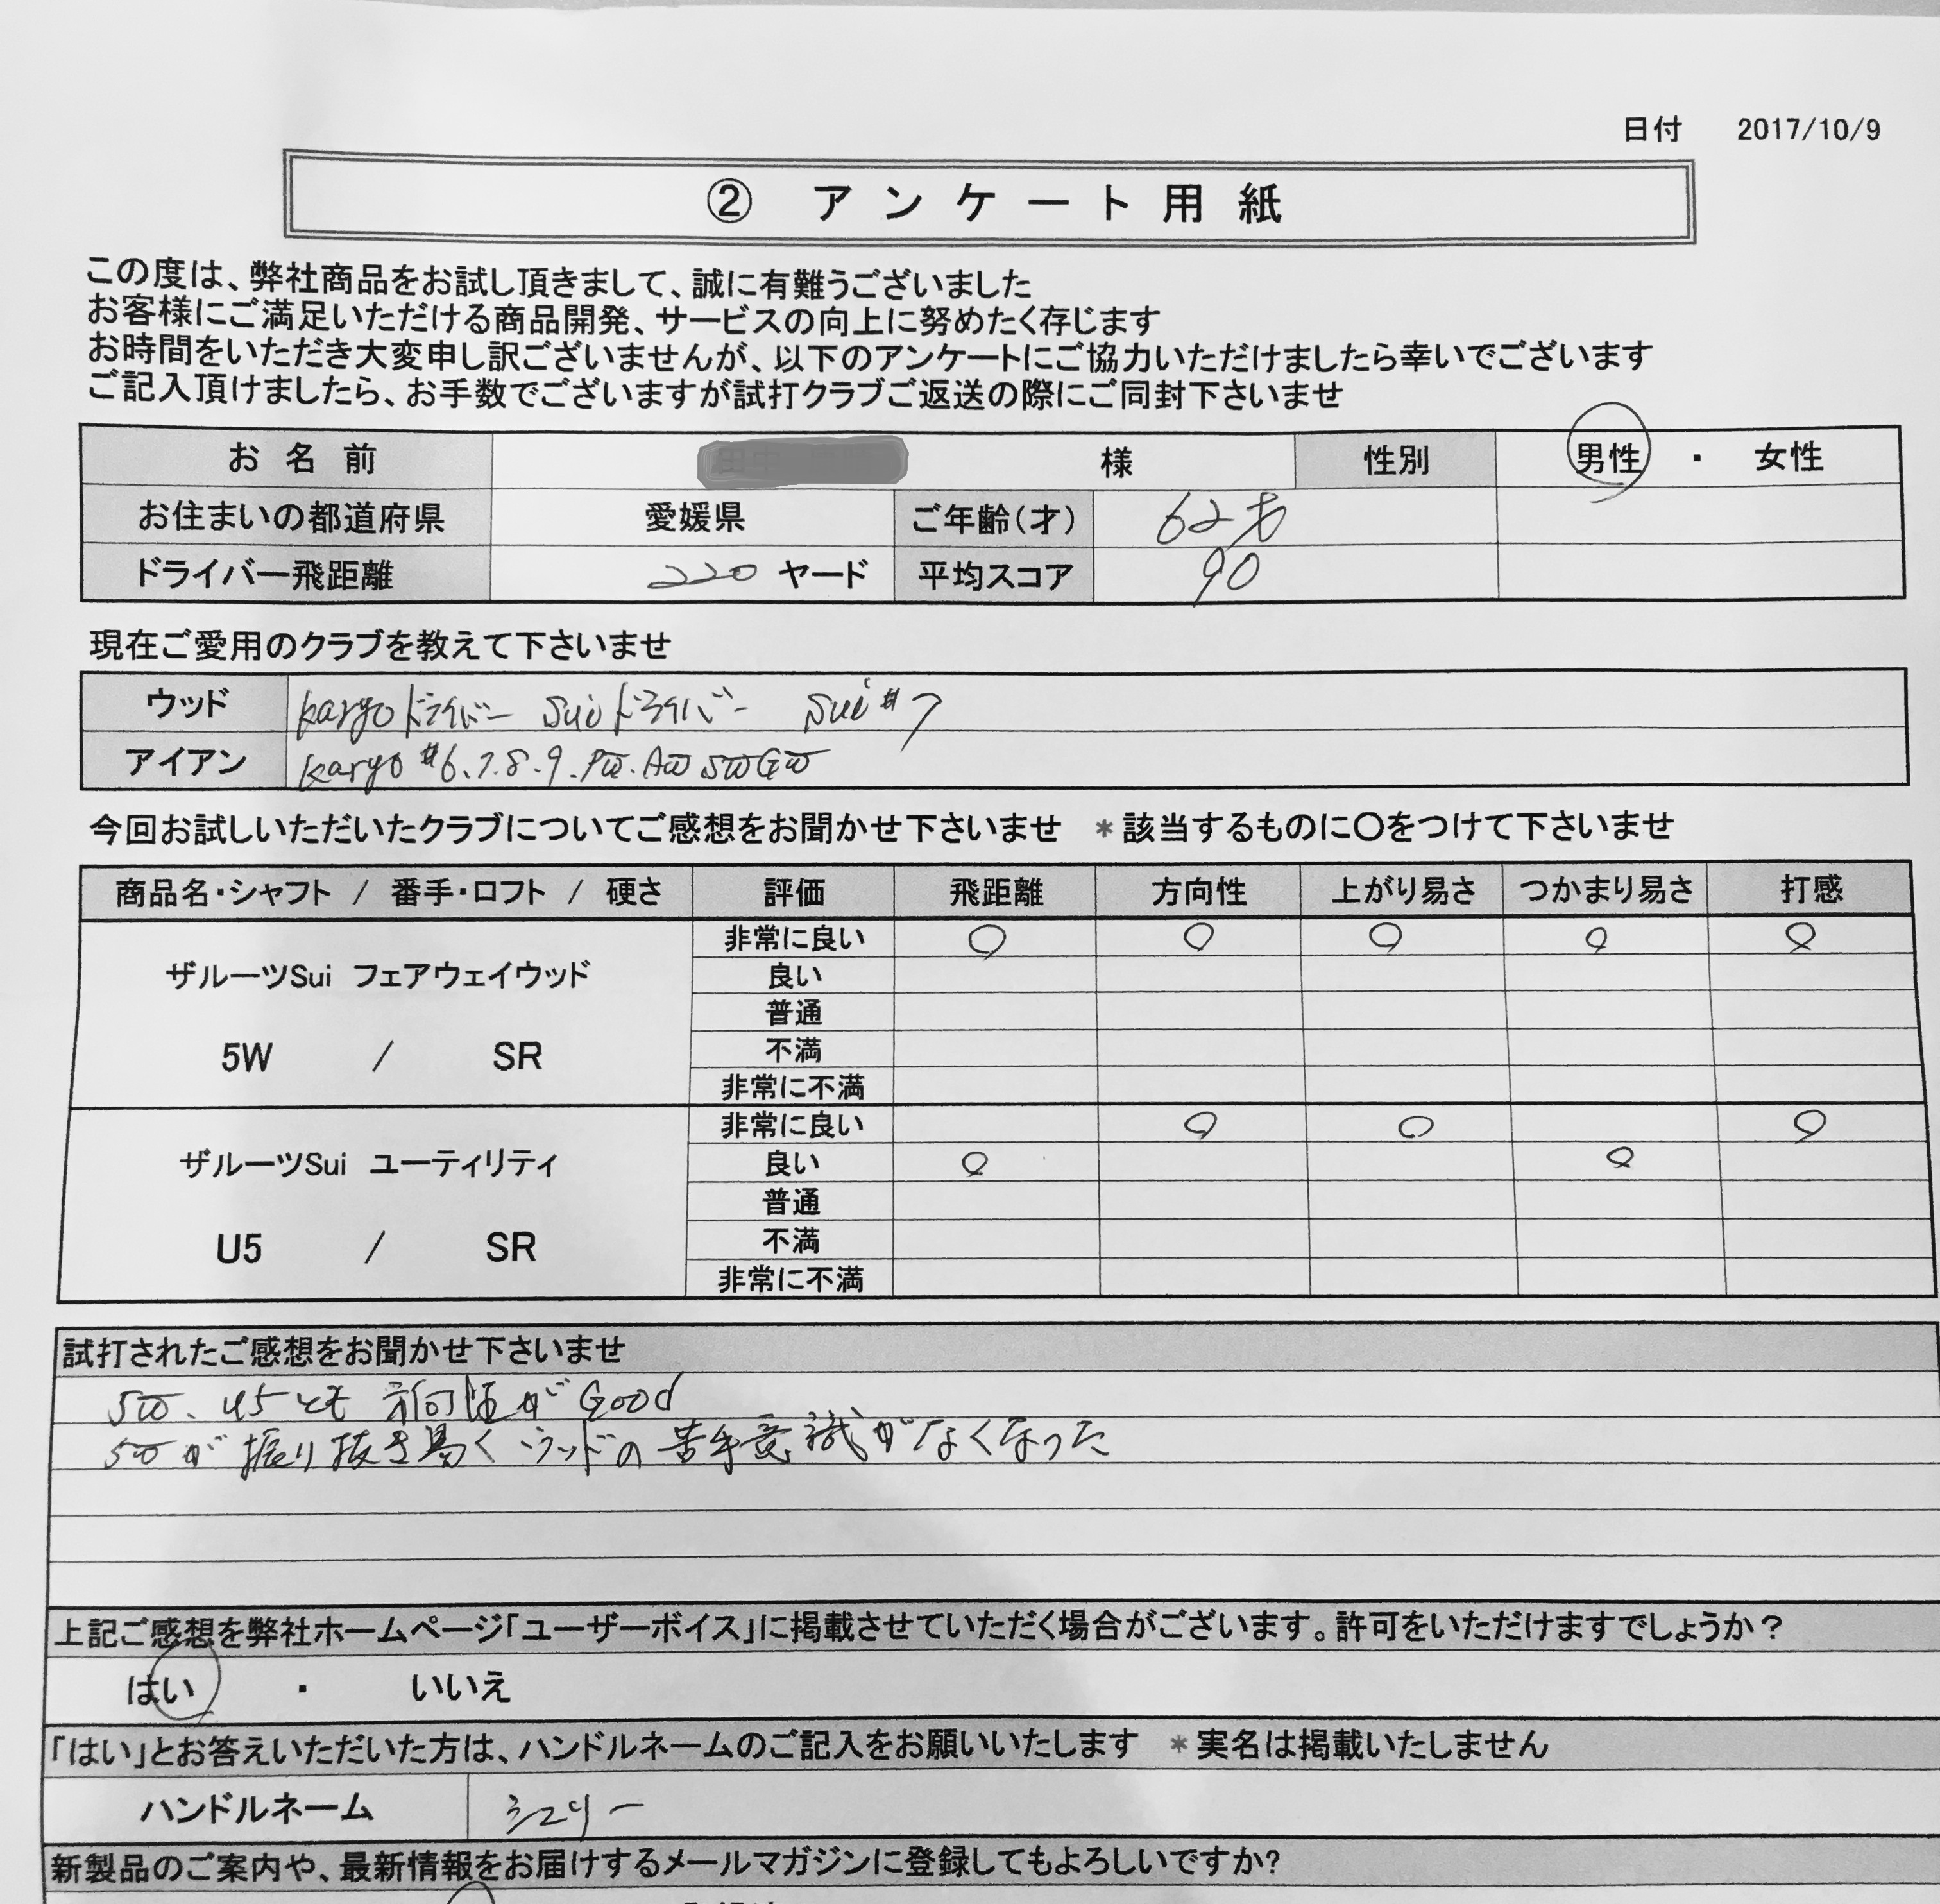 日付 2017/10/9
② アンケート用紙
この度は、弊社商品をお試し頂きまして、誠に有難うございました
お客様にご満足いただける商品開発、サービスの向上に努めたく存じます
お時間をいただき大変申し訳ございませんが、以下のアンケートにご協力いただけましたら幸いでございます
ご記入頂けましたら、お手数でございますが試打クラブご返送の際にご同封下さいませ
お名前 様 性別 男性 ・ 女性
お住まいの都道府県 愛媛県 ご年齢(才) 62才
ドライバー飛距離 220 ヤード 平均スコア 90
現在ご愛用のクラブを教えて下さいませ
ウッド karyoドライバー Suiドライバー Sui #7
アイアン karyo #6.7.8.9.PW.AW SW GW
今回お試しいただいたクラブについてご感想をお聞かせ下さいませ *該当するものに〇をつけて下さいませ
商品名・シャフト / 番手・ロフト / 硬さ 評価 飛距離 方向性 上がり易さ つかまり易さ 打感
非常に良い 〇 〇 〇 〇 〇
ザルーツSui フェアウェイウッド 良い
普通
5W / SR 不満
非常に不満
非常に良い 〇 〇 〇
ザルーツSui ユーティリティ 良い 〇 〇
普通
U5 / SR 不満
非常に不満
試打されたご感想をお聞かせ下さいませ
5W、U5とも方向性がGood
5Wが振り抜き易くウッドの苦手意識がなくなった
上記ご感想を弊社ホームページ「ユーザーボイス」に掲載させていただく場合がございます。許可をいただけますでしょうか？
はい ・ いいえ
「はい」とお答えいただいた方は、ハンドルネームのご記入をお願いいたします *実名は掲載いたしません
ハンドルネーム
新製品のご案内や、最新情報をお届けするメールマガジンに登録してもよろしいですか?